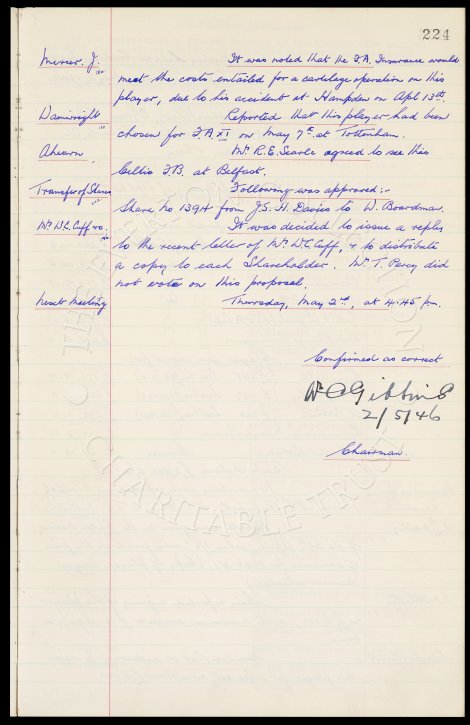 224
Mercer. J. It was noted that the F.A. Insurance would
meet the costs entailed for a cartilage operation on this
player, due to his accident at Hampden on Apl 13th.
Wainwright Reported that this player had been
chosen for F.A XI on May 7th at Tottenham.
Ahearn. Mr R.E. Searle agreed to see this
Celtic F.B. at Belfast.
Transfer of Shares Following was approved:-
Share No 1394 from J.S.H. Davies to W. Boardman.
Mr W.C. Cuff It was decided to issue a reply
to the recent letter of Mr W.C. Cuff, & to distribute
a copy to each Shareholder. Mr T. Percy did
not vote on this proposal.
Next Meeting Thursday, May 2nd, at 4.45 pm.
Confirmed as correct
W C Gibbins
2/5/46
Chairman.
THE EVERTON COLLECTION
© CHARITABLE TRUST